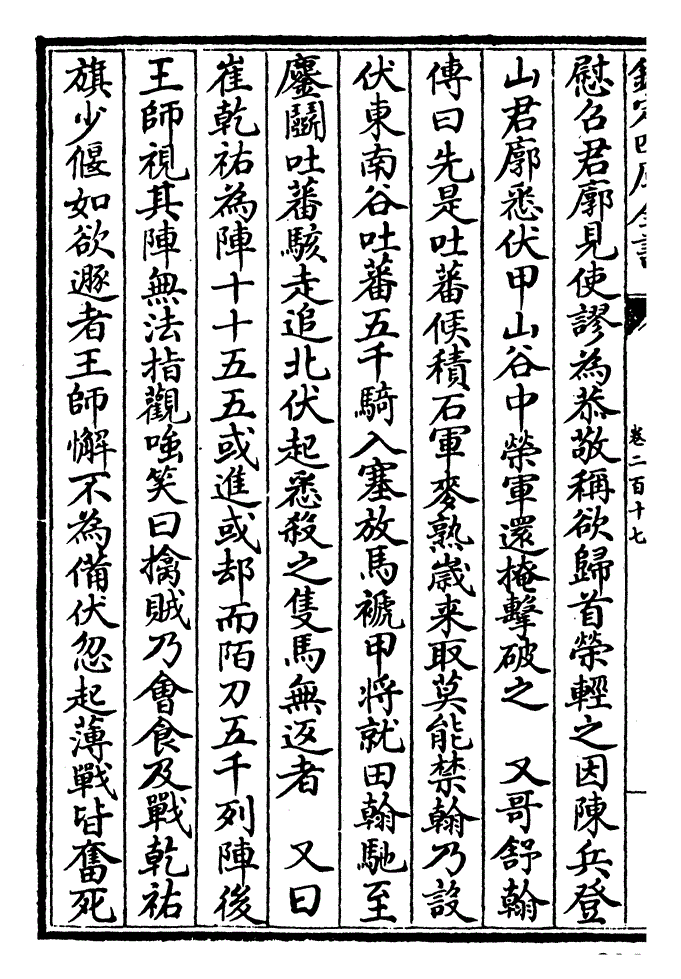 欽定四庫全書
卷二百十七
慰召君廓見使謬為恭敬稱欲歸首榮輕之因陳兵登
山君廓悉伏甲山谷中榮軍還掩擊破之　又哥舒翰
傳曰先是吐蕃候積石軍麥熟嵗来取莫能禁翰乃設
伏東南谷吐蕃五千騎入塞放馬褫甲将就田翰馳至
鏖鬭吐蕃駭走追北伏起悉殺之隻馬無返者　又曰
崔乾祐為陣十十五五或進或却而陌刀五千列陣後
王師視其陣無法指觀嗤笑曰擒賊乃會食及戰乾祐
旗少偃如欲遯者王師懈不為備伏忽起薄戰皆奮死